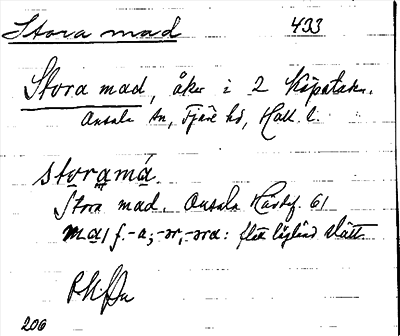 Stora mad 433
Stora mad, åker i 2 Köpstaden.
Onsala sn, Fjäre hd, Hall. l.
storamá
Stora mad. Onsala Häradsf. 61
mad f. -a; -ər, -əra: flat lågländ slätt.
206